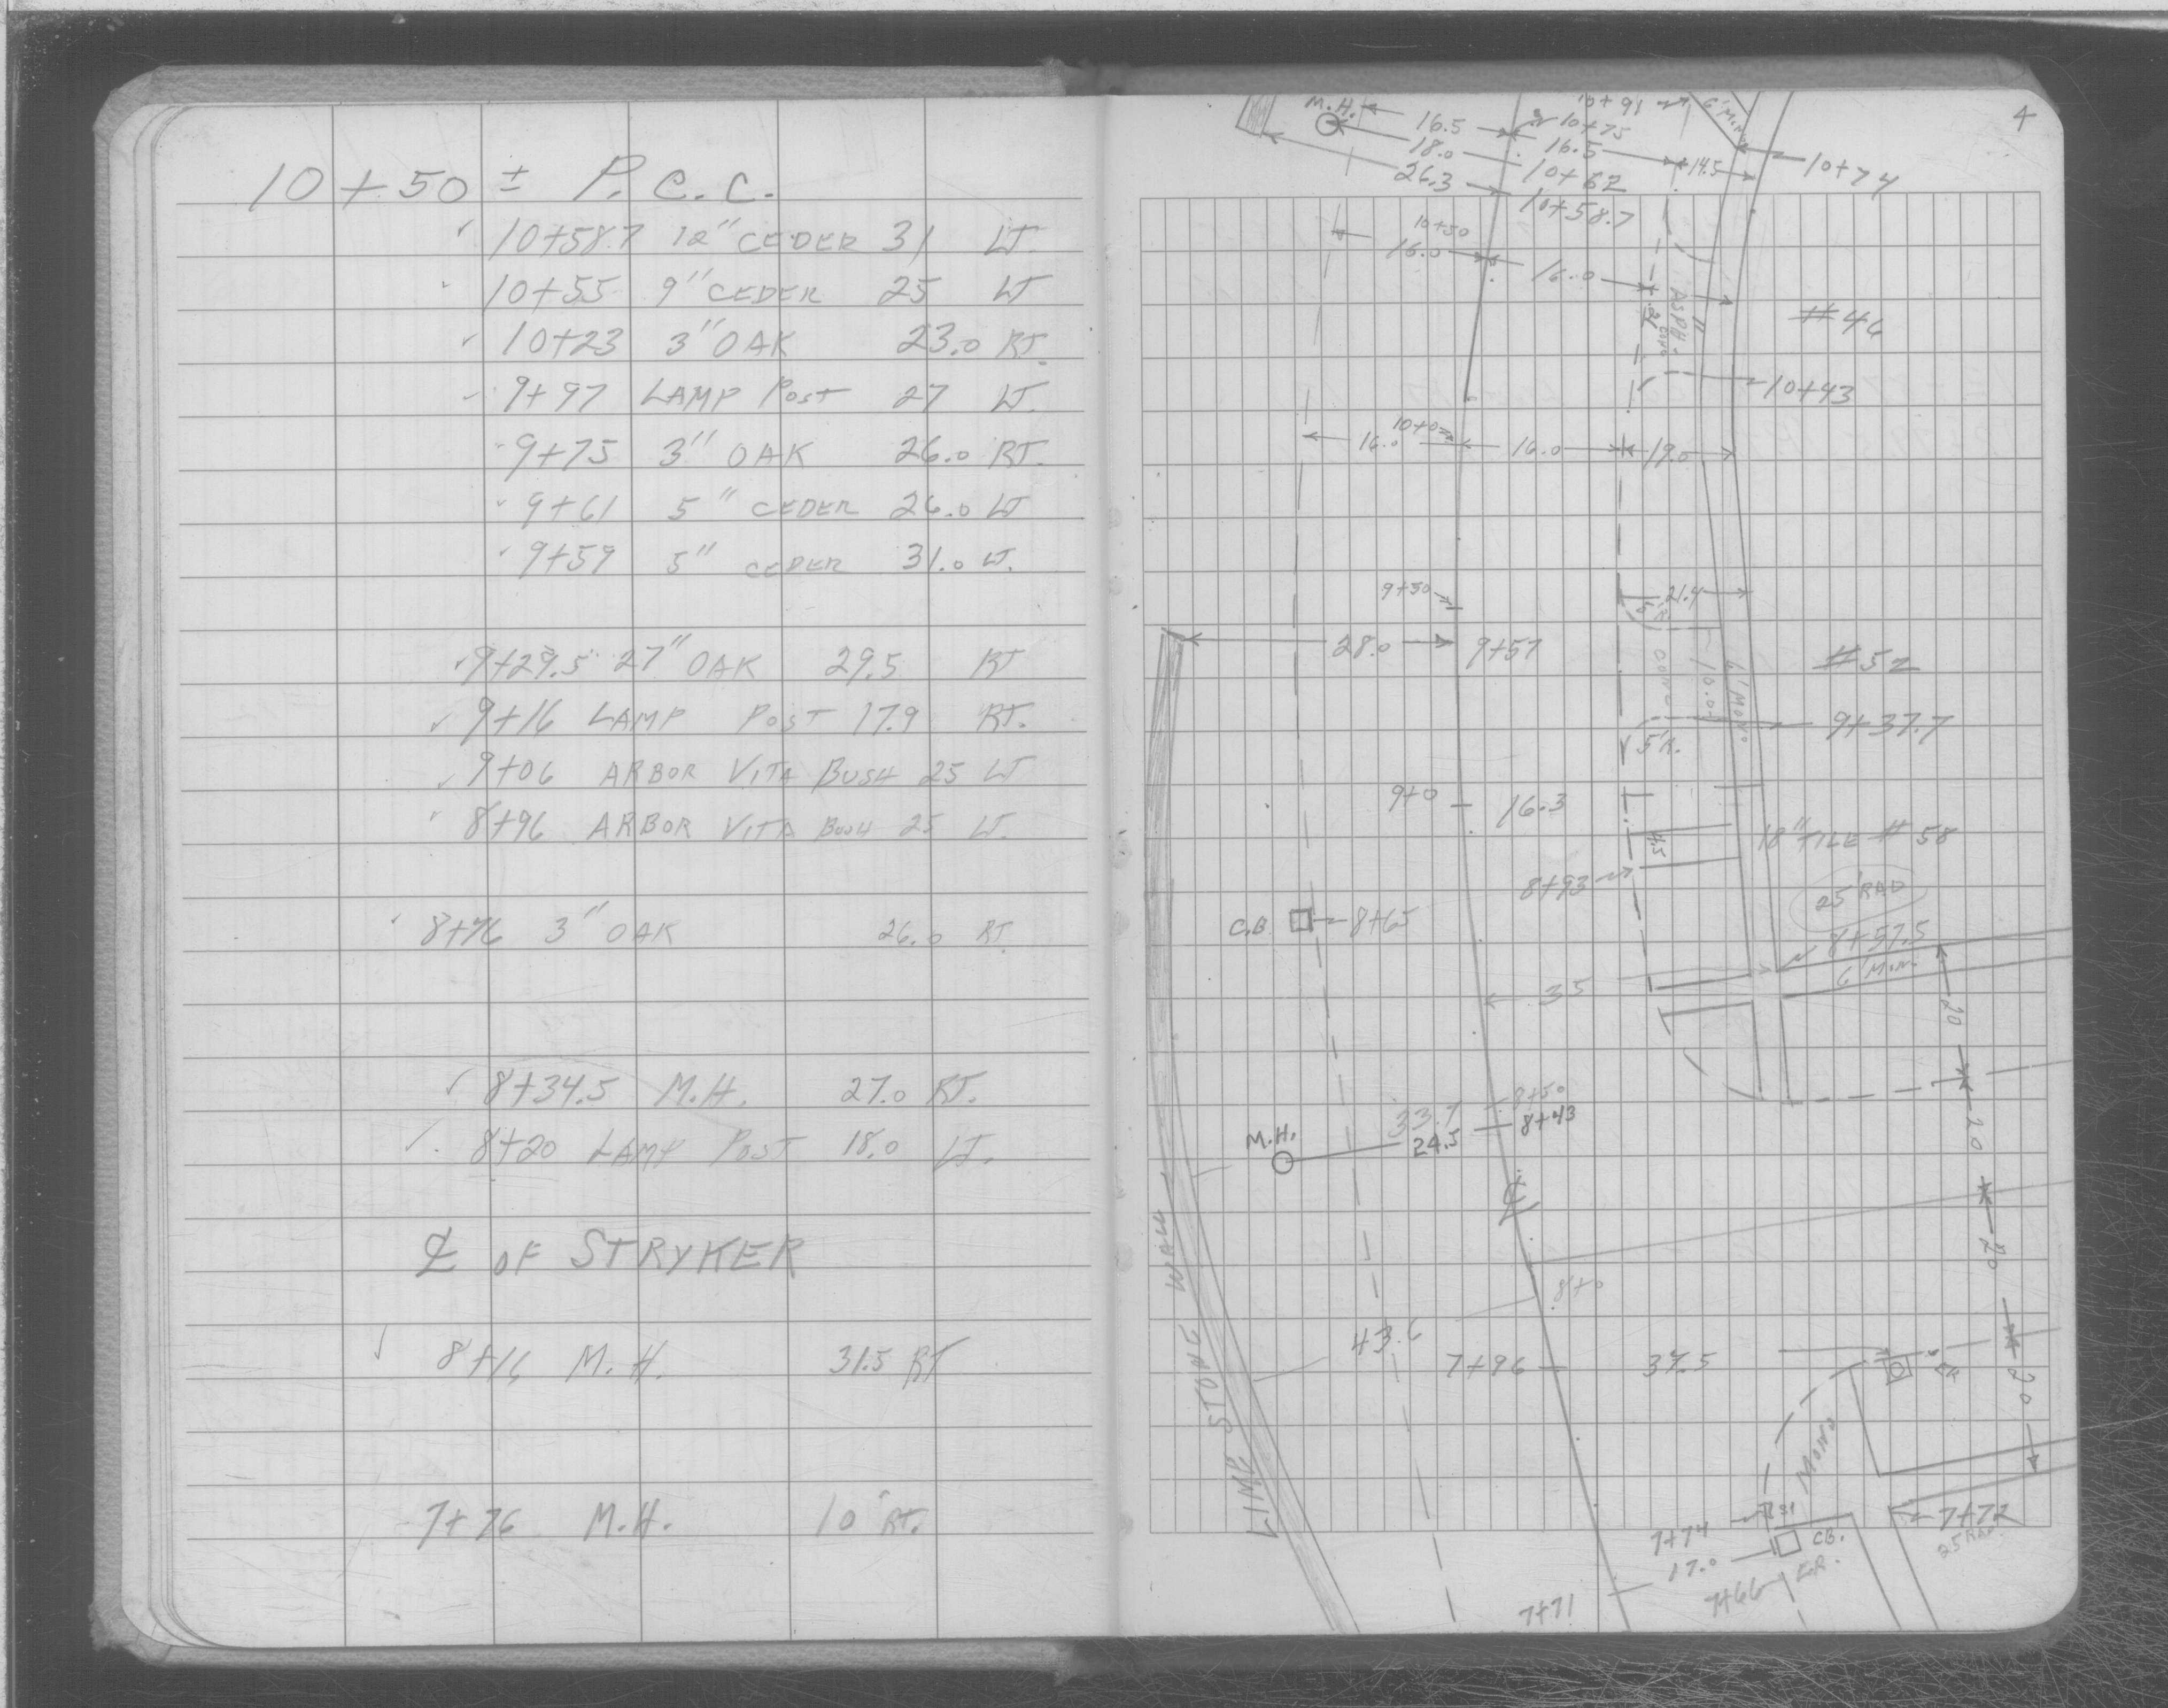 10+50 ± P.C.C.
10+58.7 12" CEDER 31 LT.
10+55 9" CEDER 25 LT
10+23 3" OAK 23.0 RT.
9+97 LAMP POST 27 LT.
9+75 3" OAK 26.0 RT.
9+61 5" CEDER 26.0 LT
9+59 5" CEDER 31.0 LT.
9+29.5 27" OAK 29.5 RT
9+16 LAMP POST 17.9 RT.
9+06 ARBOR VITA BUSH 25 LT
8+96 ARBOR VITA BUSH 25 LT.
8+76 3" OAK 26.0 RT.
8+34.5 M.H. 27.0 RT.
8+20 LAMP POST 18.0 LT.
℄ OF STRYKER
8+16 M.H. 31.5 RT
7+76 M.H. 10 RT.
4
M.H. 16.5 10+75 10+91 6' MON
18.0 16.5 14.5 10+74
26.3 10+62
10+58.7
10+50
16.0 16.0
ASPH.
#46
10+43
10+0
16.0 16.0 19.0
9+50 21.4
28.0 9+57
CONC
10.0
6' MONO
#52
9+37.7
5'R.
9+0 16.3
4.5
18" TILE #58
8+93
25' RAD
C.B. 8+65
8+57.5
6' MON.
35
20
33.7 8+50
M.H. 24.5 8+43
20
℄
20
8+0
43.6
7+96 37.5
20
LIME STONE WALL
MONO
7+74
17.0 C.B.
7+72
25 RAD.
7+66
7+71